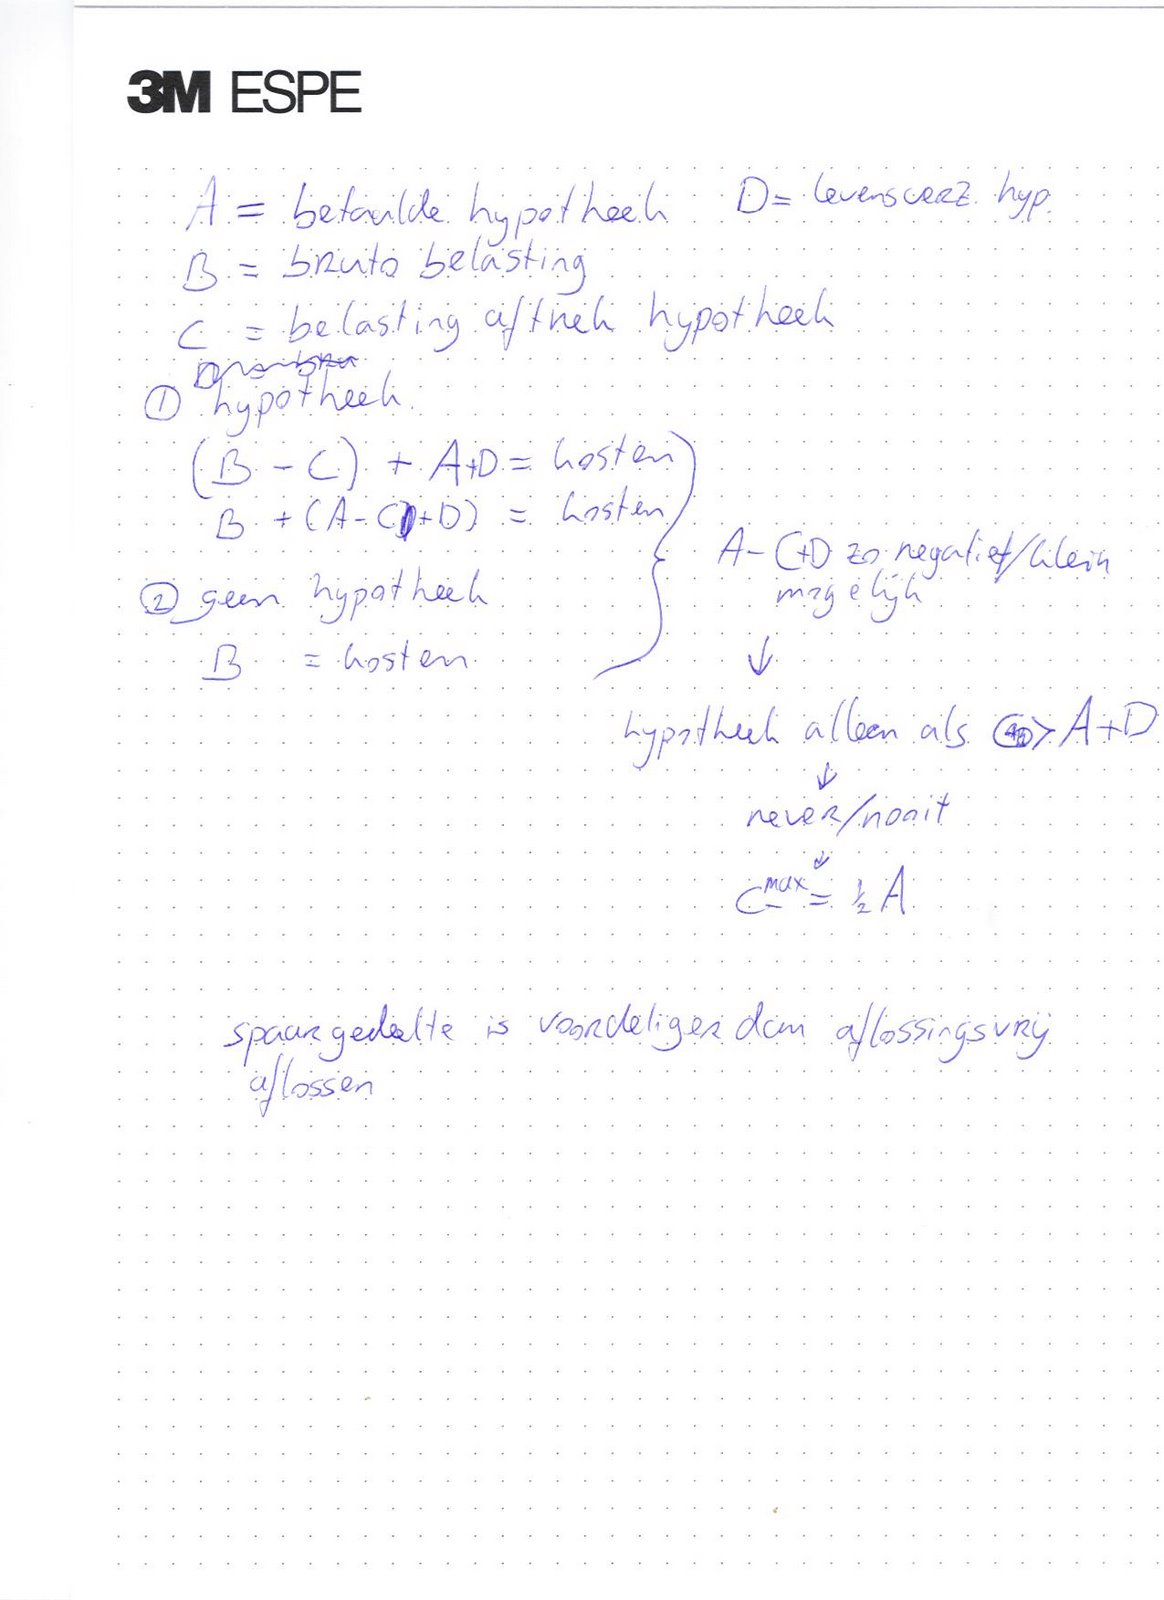 3M ESPE
A = betaalde hypotheek D = levensverz. hyp.
B = bruto belasting
C = belasting aftrek hypotheek
① hypotheek
(B - C) + A+D = kosten
B + (A - C +D) = kosten
A - C+D zo negatief/klein
mogelijk
② geen hypotheek
B = kosten
↓
hypotheek alleen als > A+D
↓
never/nooit
↓
C max = ½ A
spaargedeelte is voordeliger dan aflossingsvrij
aflossen